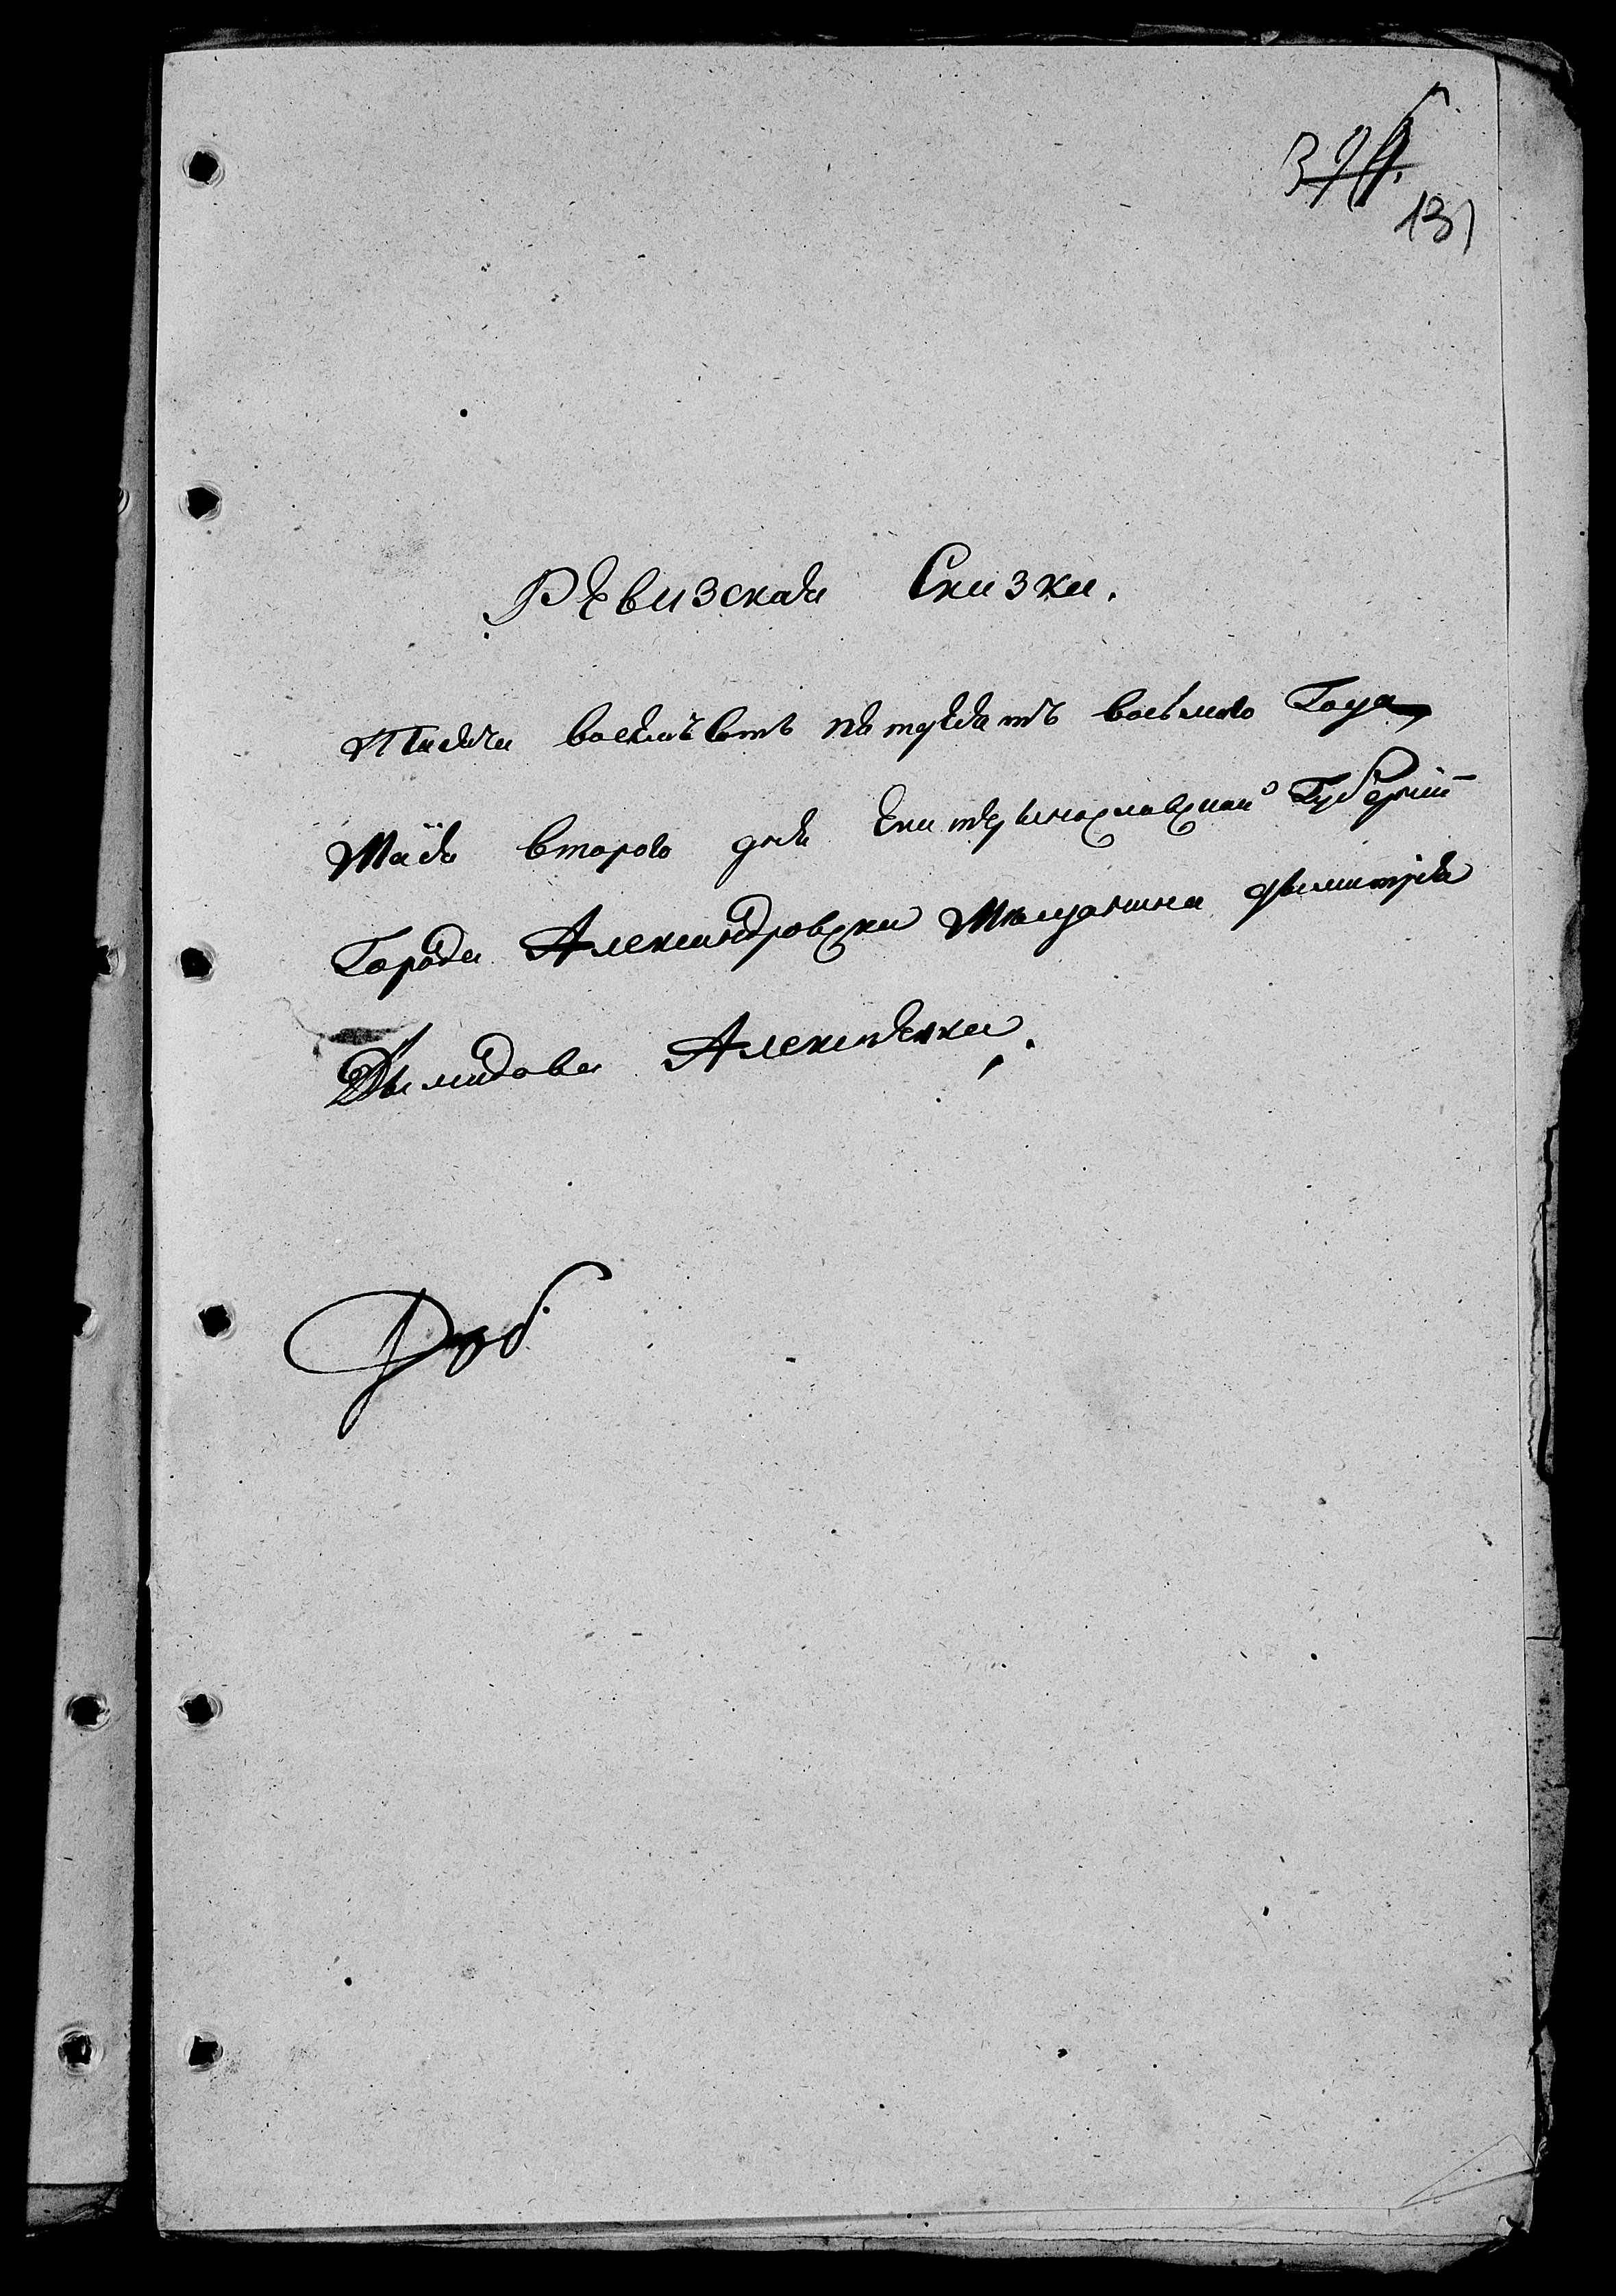 131
Ревизская Сказка.
Тысяча восемъсотъ пятдесятъ восьмого Года,
Маія второго дня Екатеринославской Губерніи
Города Александровска Мещанина Димитрія
Демидова Алексеенка.